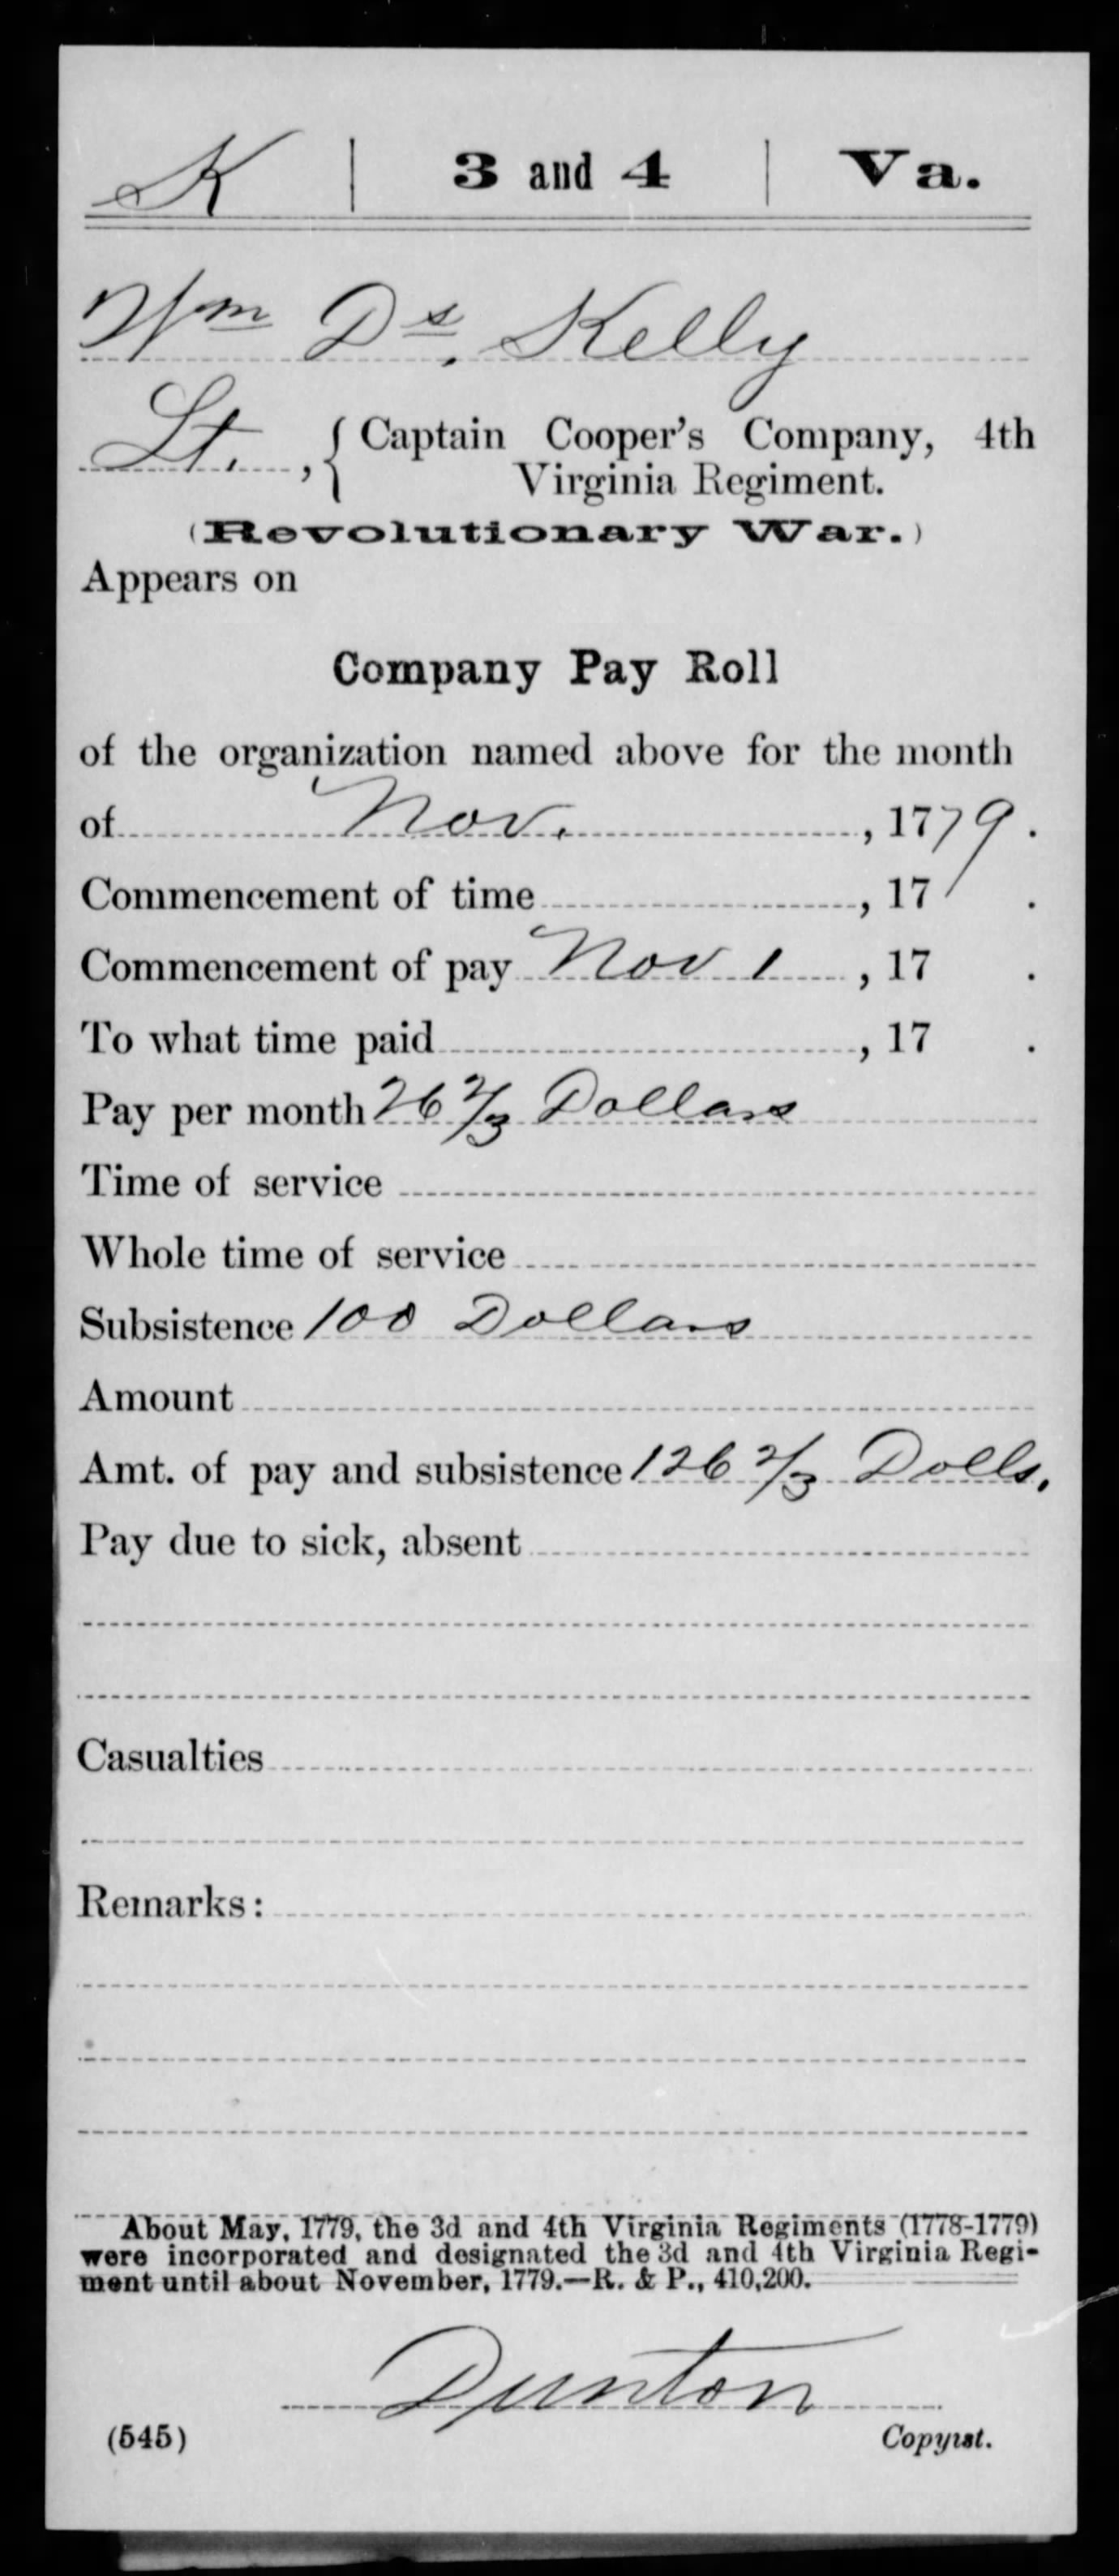 K | 3 and 4 | Va.
Wm Ds. Kelly
Lt., { Captain Cooper's Company, 4th
Virginia Regiment.
(Revolutionary War.)
Appears on
Company Pay Roll
of the organization named above for the month
of Nov. , 1779.
Commencement of time , 17 .
Commencement of pay Nov 1 , 17 .
To what time paid , 17 .
Pay per month 26 2/3 Dollars
Time of service
Whole time of service
Subsistence 100 Dollars
Amount
Amt. of pay and subsistence 126 2/3 Dolls.
Pay due to sick, absent
Casualties
Remarks:
About May, 1779, the 3d and 4th Virginia Regiments (1778-1779)
were incorporated and designated the 3d and 4th Virginia Regi-
ment until about November, 1779.—R. & P., 410,200.
Dunton
(545) Copyist.